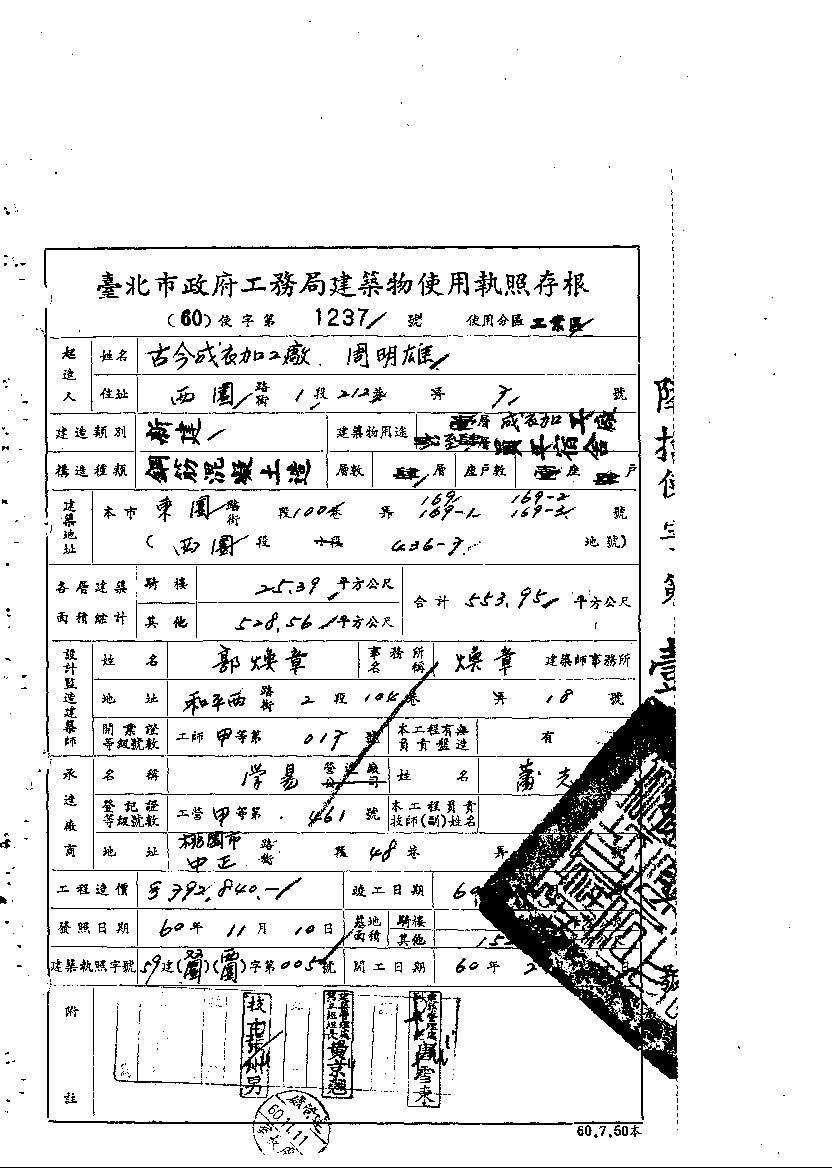 臺北市政府工務局建築物使用執照存根
(60)使字第 1237 號 使用分區 工業區
起造人 姓名 古今成衣加工廠 周明雄
住址 西園 路街 1 段 212巷 弄 號
建造類別 新建 建築物用途 層 成衣加工廠
員工宿舍
構造種類 鋼筋混凝土造 層數 層 座戶數 座 戶
建築地址 本市 東園 路街 段 100巷 弄 169 169-1 169-2 169-3 號
(西園 段 小段 436-7 地號)
各層建築面積總計 騎樓 25.39 平方公尺 合計 553.95 平方公尺
其他 528.56 平方公尺
設計監造建築師 姓名 郭煥章 事務所名稱 煥章 建築師事務所
地址 和平西 路街 2 段 104巷 弄 18 號
開業證等級號數 工師 甲等第 017 號 本工程有無負責監造 有
承造廠商 名稱 学易 營造廠公司 姓名 蕭
登記證等級號數 工營 甲等第 461 號 本工程負責技師(副)姓名
地址 桃園市中正 路街 段 48 巷 弄
工程造價 392,840.- 竣工日期 60
發照日期 60年 11月 10日 基地面積 騎樓
其他 15
建築執照字號 59建(雙園)(西園)字第005號 開工日期 60年 2
附註
60.11.11
60.7.50本
陸拾使字第壹